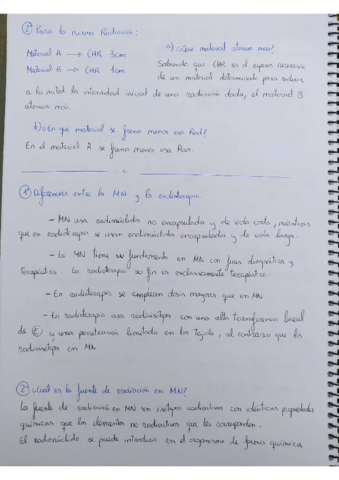 ② Para la misma Radiación:
Material A → CHR 3cm
Material B → CHR 1cm
a) ¿Qué material atenua más?
Sabiendo que CHR es el espesor necesario
de un material determinado para reducir
a la mitad la intensidad inicial de una radiación dada, el material B
atenua más.
b) ¿En qué material se frena menos esa Rad?
En el material A se frena menos esa Rad.
① Diferencias entre la MN y la radioterapia.
- MN usa radionúclidos no encapsulados y de vida corta, mientras
que en radioterapia se usan radionúclidos encapsulados y de vida larga.
- La MN tiene su fundamento en MN con fines diagnósticos y
terapéutico. La radioterapia su fin es exclusivamente terapéutico.
- En radioterapia se emplean dosis mayores que en MN
- En radioterapia usa radioisótopos con una alta transferencia lineal
de E y una penetración limitada en los tejidos, al contrario que los
radioisótopos en MN
② ¿Cuál es la fuente de radiación en MN?
La fuente de radiación en MN son isótopos radiactivos con idénticas propiedades
químicas que los elementos no radiactivos que les corresponden.
El radionúclido se puede introducir en el organismo de forma química